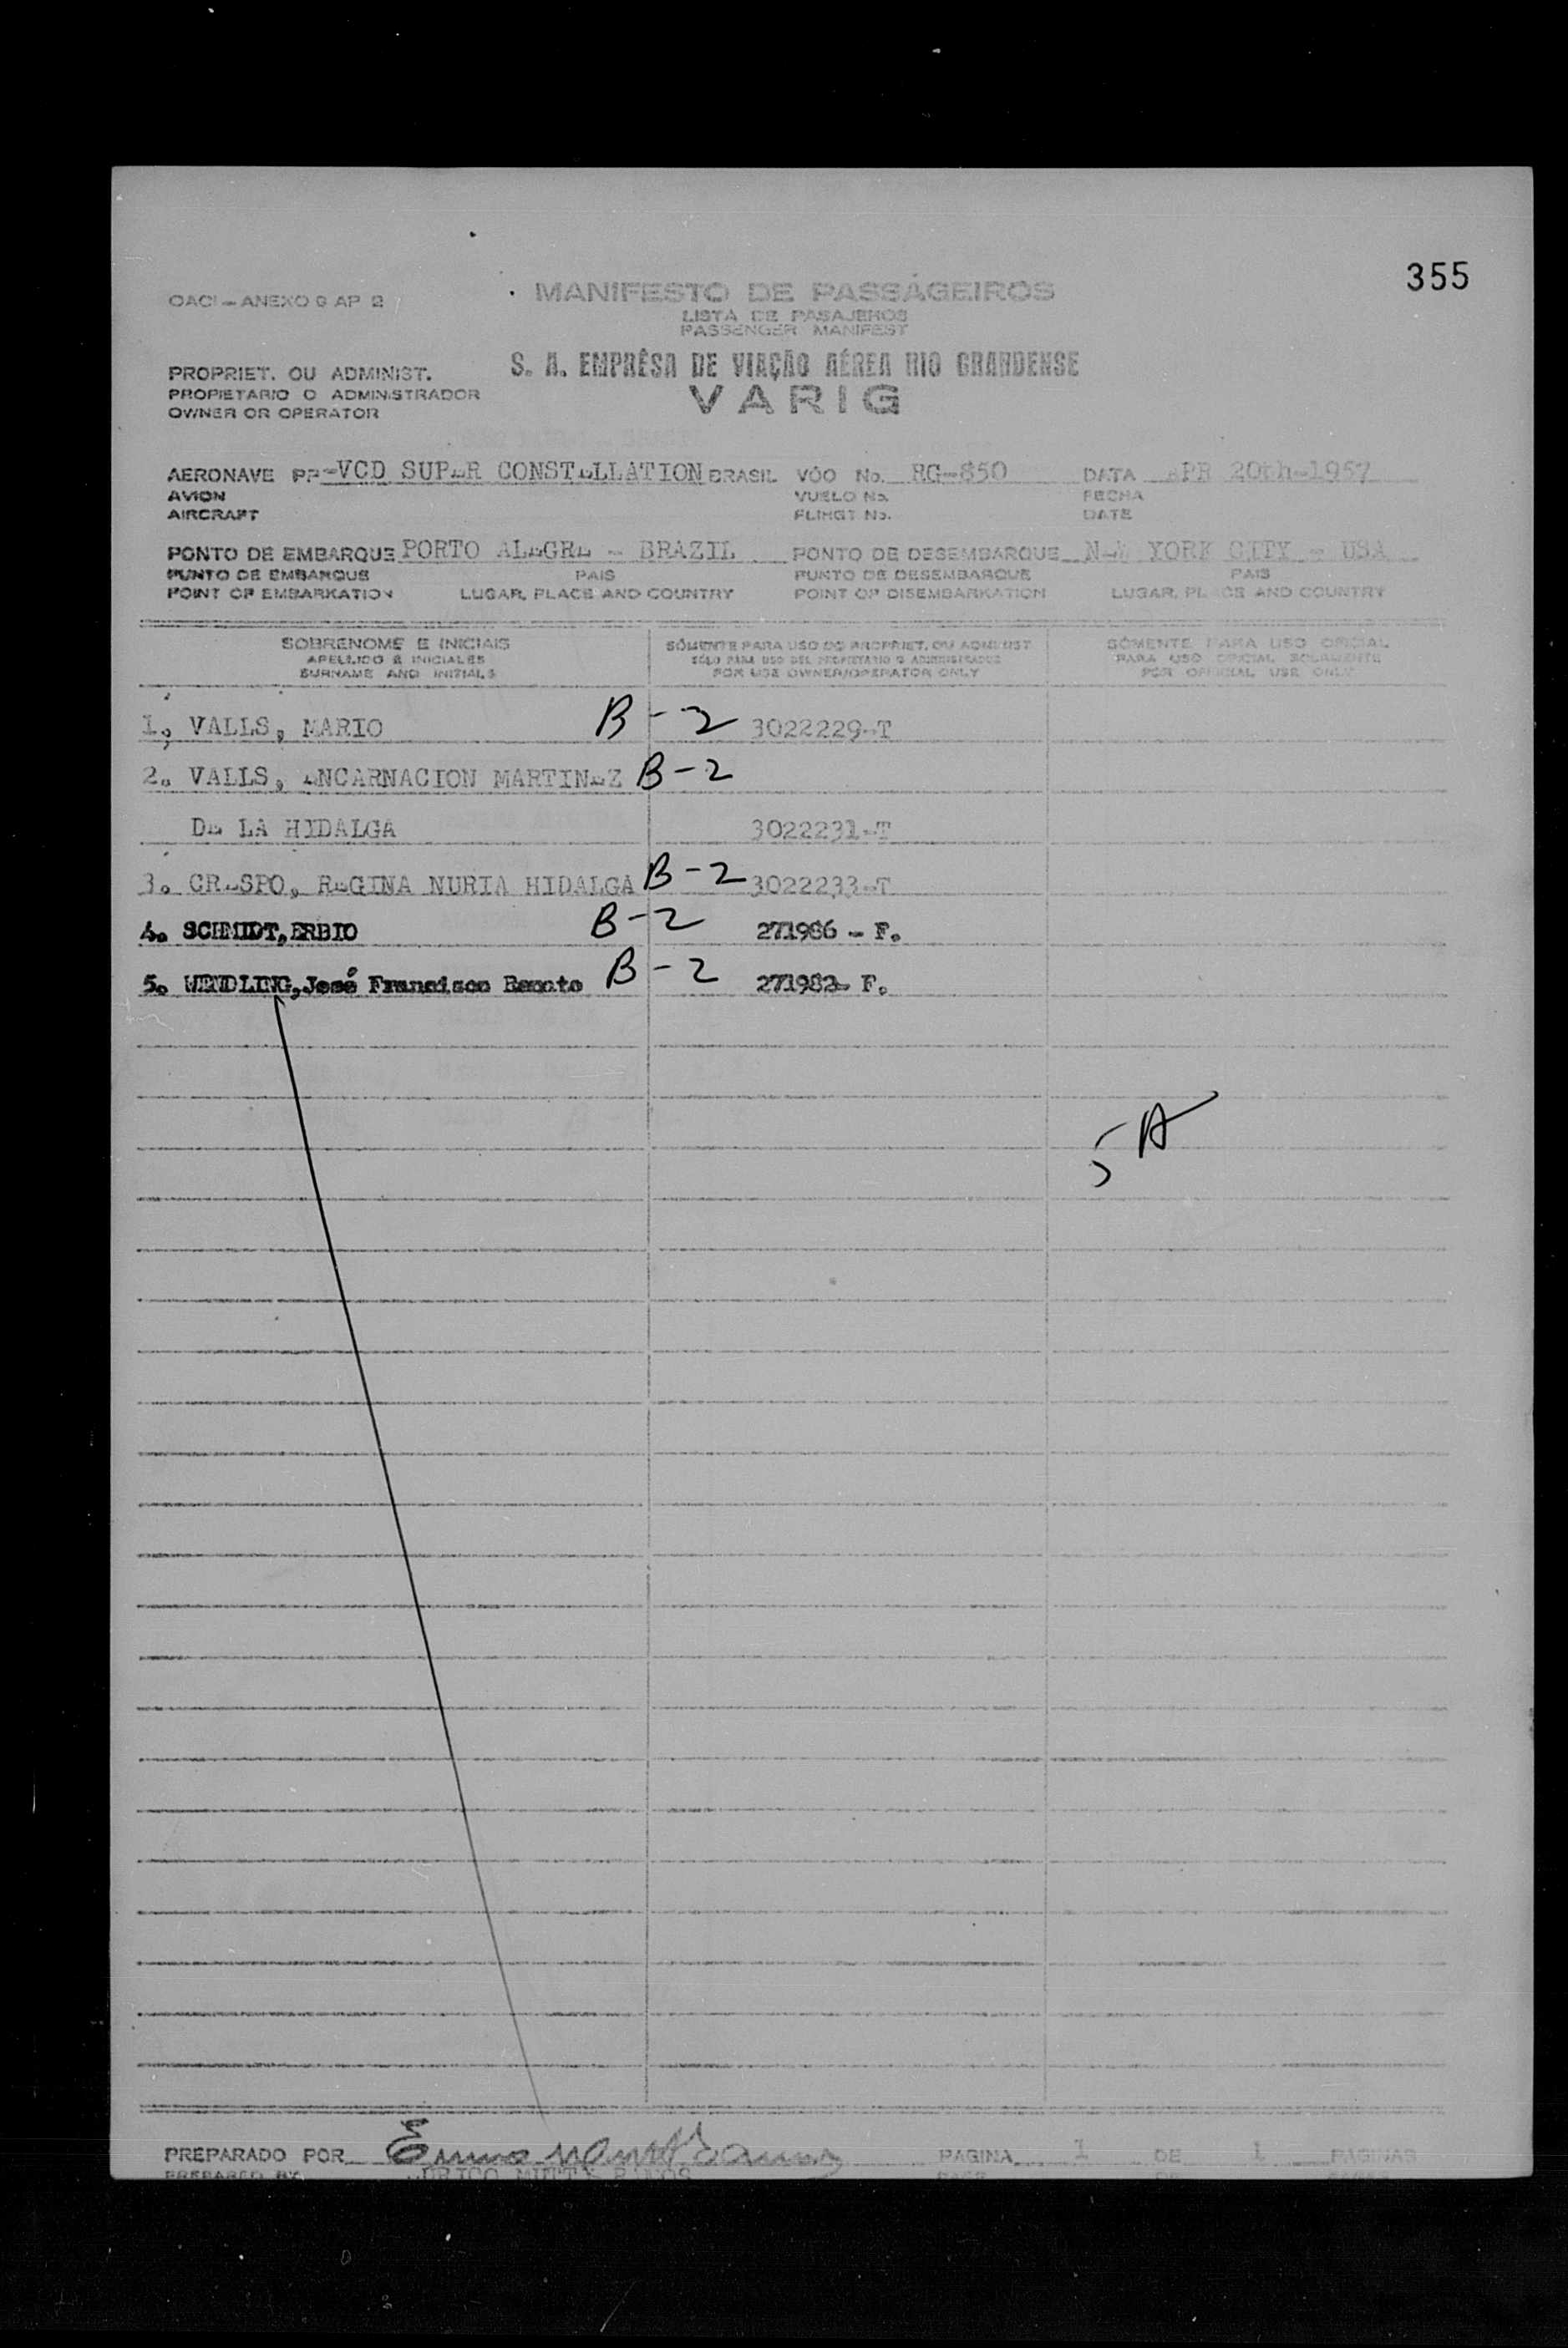 355
OACI - ANEXO 9 AP 2
MANIFESTO DE PASSAGEIROS
LISTA DE PASAJEROS
PASSENGER MANIFEST
PROPRIET. OU ADMINIST.
PROPIETARIO O ADMINISTRADOR
OWNER OR OPERATOR
S. A. EMPRÊSA DE VIAÇÃO AÉREA RIO GRANDENSE
VARIG
AERONAVE PP-VCD SUPER CONSTELLATION BRASIL VÔO No. RG-850 DATA APR 20th-1957
AVION VUELO No. FECHA
AIRCRAFT FLIHGT No. DATE
PONTO DE EMBARQUE PORTO ALEGRE - BRAZIL PONTO DE DESEMBARQUE NEW YORK CITY - USA
PUNTO DE EMBARQUE PAIS PUNTO DE DESEMBARQUE PAIS
POINT OF EMBARKATION LUGAR, PLACE AND COUNTRY POINT OF DISEMBARKATION LUGAR, PLACE AND COUNTRY
SOBRENOME E INICIAIS SÓMENTE PARA USO DO PROPRIET. OU ADMINIST SÓMENTE PARA USO OFICIAL
APELLIDO E INICIALES SÓLO PARA USO DEL PROPIETARIO O ADMINISTRADOR PARA USO OFICIAL SOLAMENTE
SURNAME AND INITIALS FOR USE OWNER/OPERATOR ONLY FOR OFFICIAL USE ONLY
1. VALLS, MARIO B-2 3022229-T
2. VALLS, ENCARNACION MARTINEZ B-2
DE LA HIDALGA 3022231-T
3. CRESPO, REGINA NURIA HIDALGA B-2 3022233-T
4. SCHMIDT, ERBIO B-2 271986 - F.
5. WENDLING, José Francisco Renato B-2 271982- F.
5 A
PREPARADO POR PAGINA 1 DE 1 PAGINAS
PREPARED BY